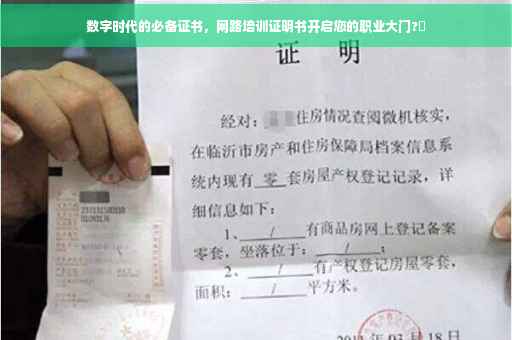 数字时代的必备证书，网路培训证明书开启您的职业大门?
证 明
经对：住房情况查阅微机核实，
在临沂市房产和住房保障局档案信息系
统内现有 零 套房屋产权登记记录，详
细信息如下：
1、 / 有商品房网上登记备案
零套，坐落位于： / ；
2、 / 有产权登记房屋零套，
面积： / 平方米。
03月18日